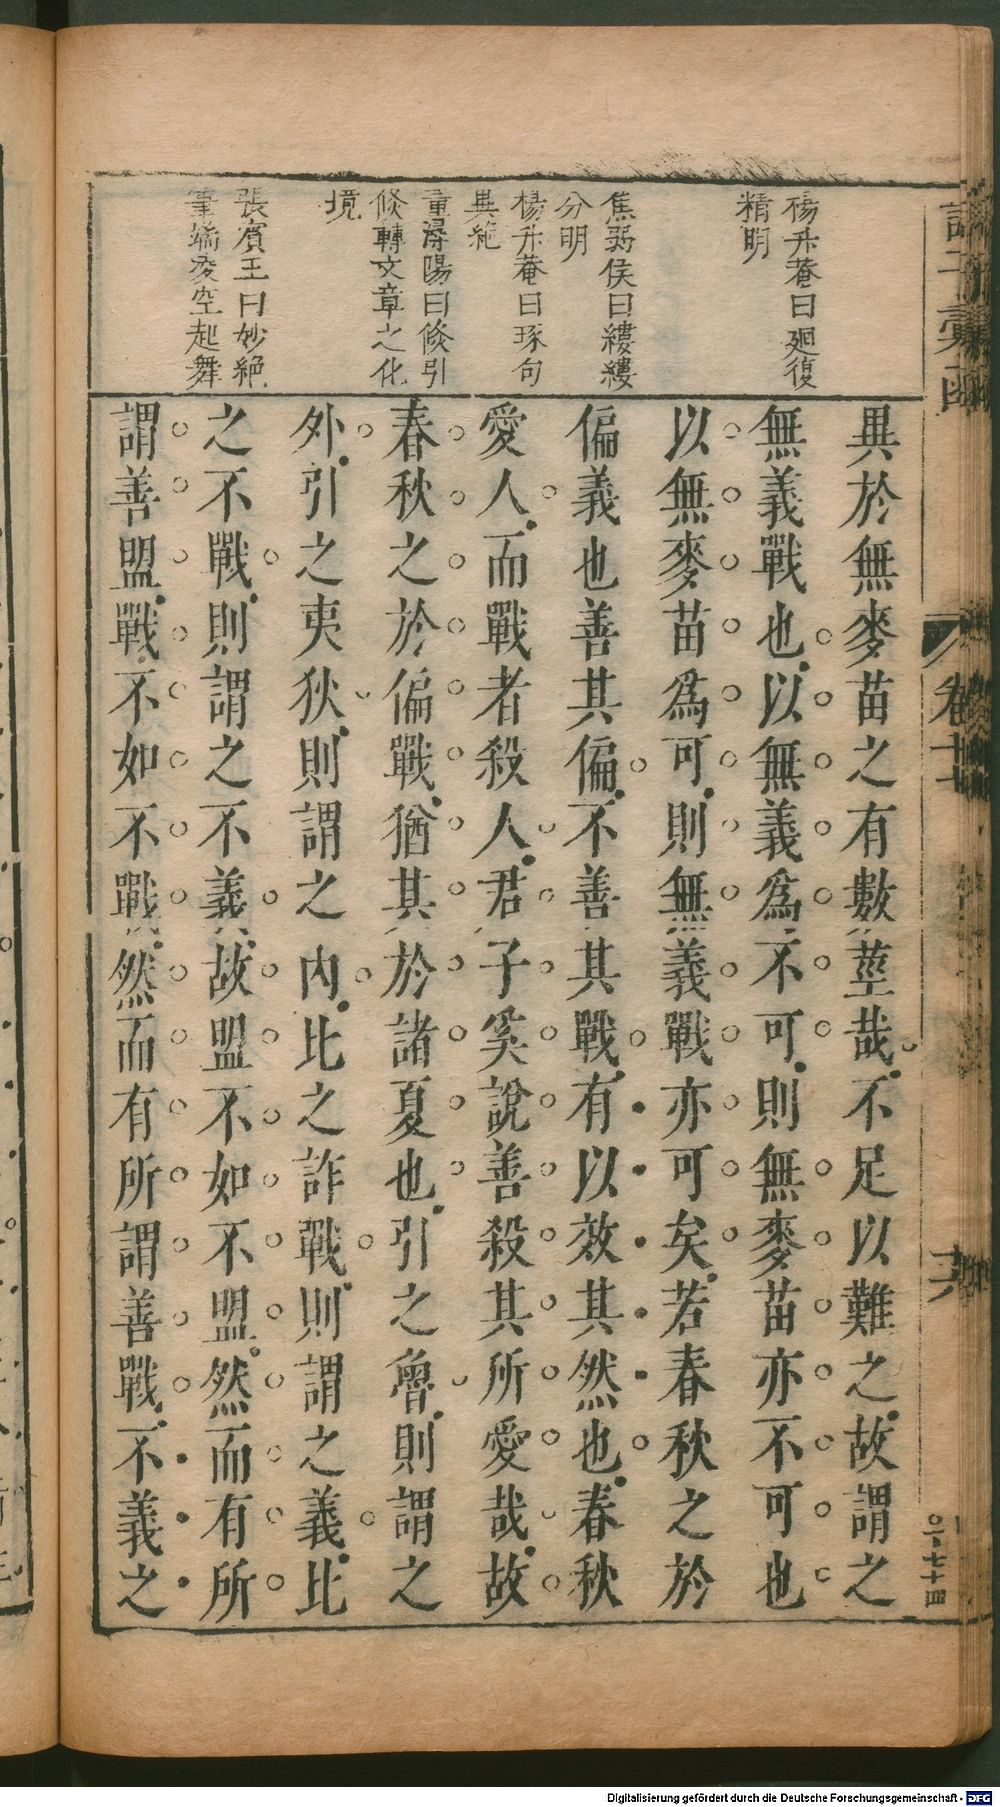 楊升菴曰廻復
精明
焦弱侯曰縷縷
分明
楊升菴曰琢句
異絶
董潯陽曰倐引
倐轉文章之化
境
張賓王曰妙絶
筆端凌空起舞
異於無麥苗之有數莖哉不足以難之故謂之
無義戰也以無義爲不可則無麥苗亦不可也
以無麥苗爲可則無義戰亦可矣若春秋之於
偏義也善其偏不善其戰有以效其然也春秋
愛人而戰者殺人君子奚說善殺其所愛哉故
春秋之於偏戰猶其於諸夏也引之魯則謂之
外引之夷狄則謂之內比之詐戰則謂之義比
之不戰則謂之不義故盟不如不盟然而有所
謂善盟戰不如不戰然而有所謂善戰不義之
諸子彙函
卷十
十六
〇一七十四
Digitalisierung gefördert durch die Deutsche Forschungsgemeinschaft - DFG